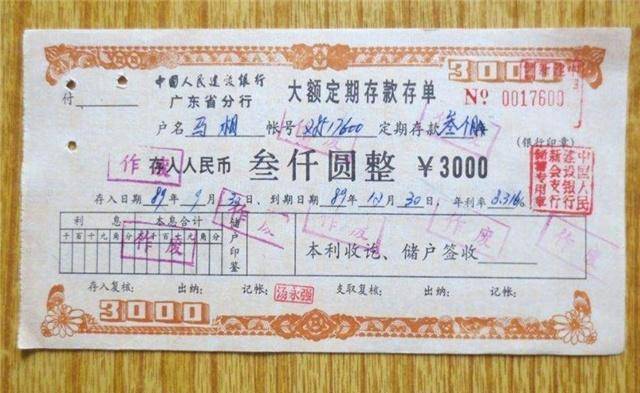 3000
中国人民建设银行
广东省分行
付
大额定期存款存单
No 0017600
户名 马相 帐号 17600 定期存款 叁个月
(银行印章)
存入人民币 叁仟圆整 ￥3000
存入日期 89年9月30日、到期日期 89年12月30日、年利率
中国人民
建设银行
新会支行
储蓄专用章
利息 本息合计
千百十元角分 千百十元角分
储户印鉴
本利收讫、储户签收
存入复核: 出纳: 记帐: 汤永强 支取复核: 出纳: 记帐:
3000
作废
作废
作废
作废
作废
作废
作废